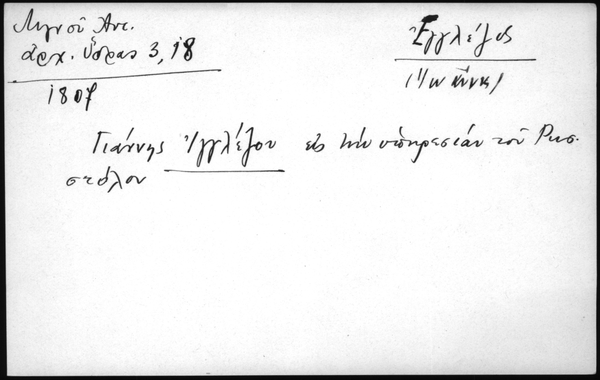 Λιγνοῦ Ἀντ.
ἀρχ. Ὕδρας 3, 18
1807
Ἐγγλέζος
(Ἰωάννης)
Γιάννης Ἰγγλέζου εἰς τὴν ὑπηρεσίαν τοῦ Ρωσ.
στόλου